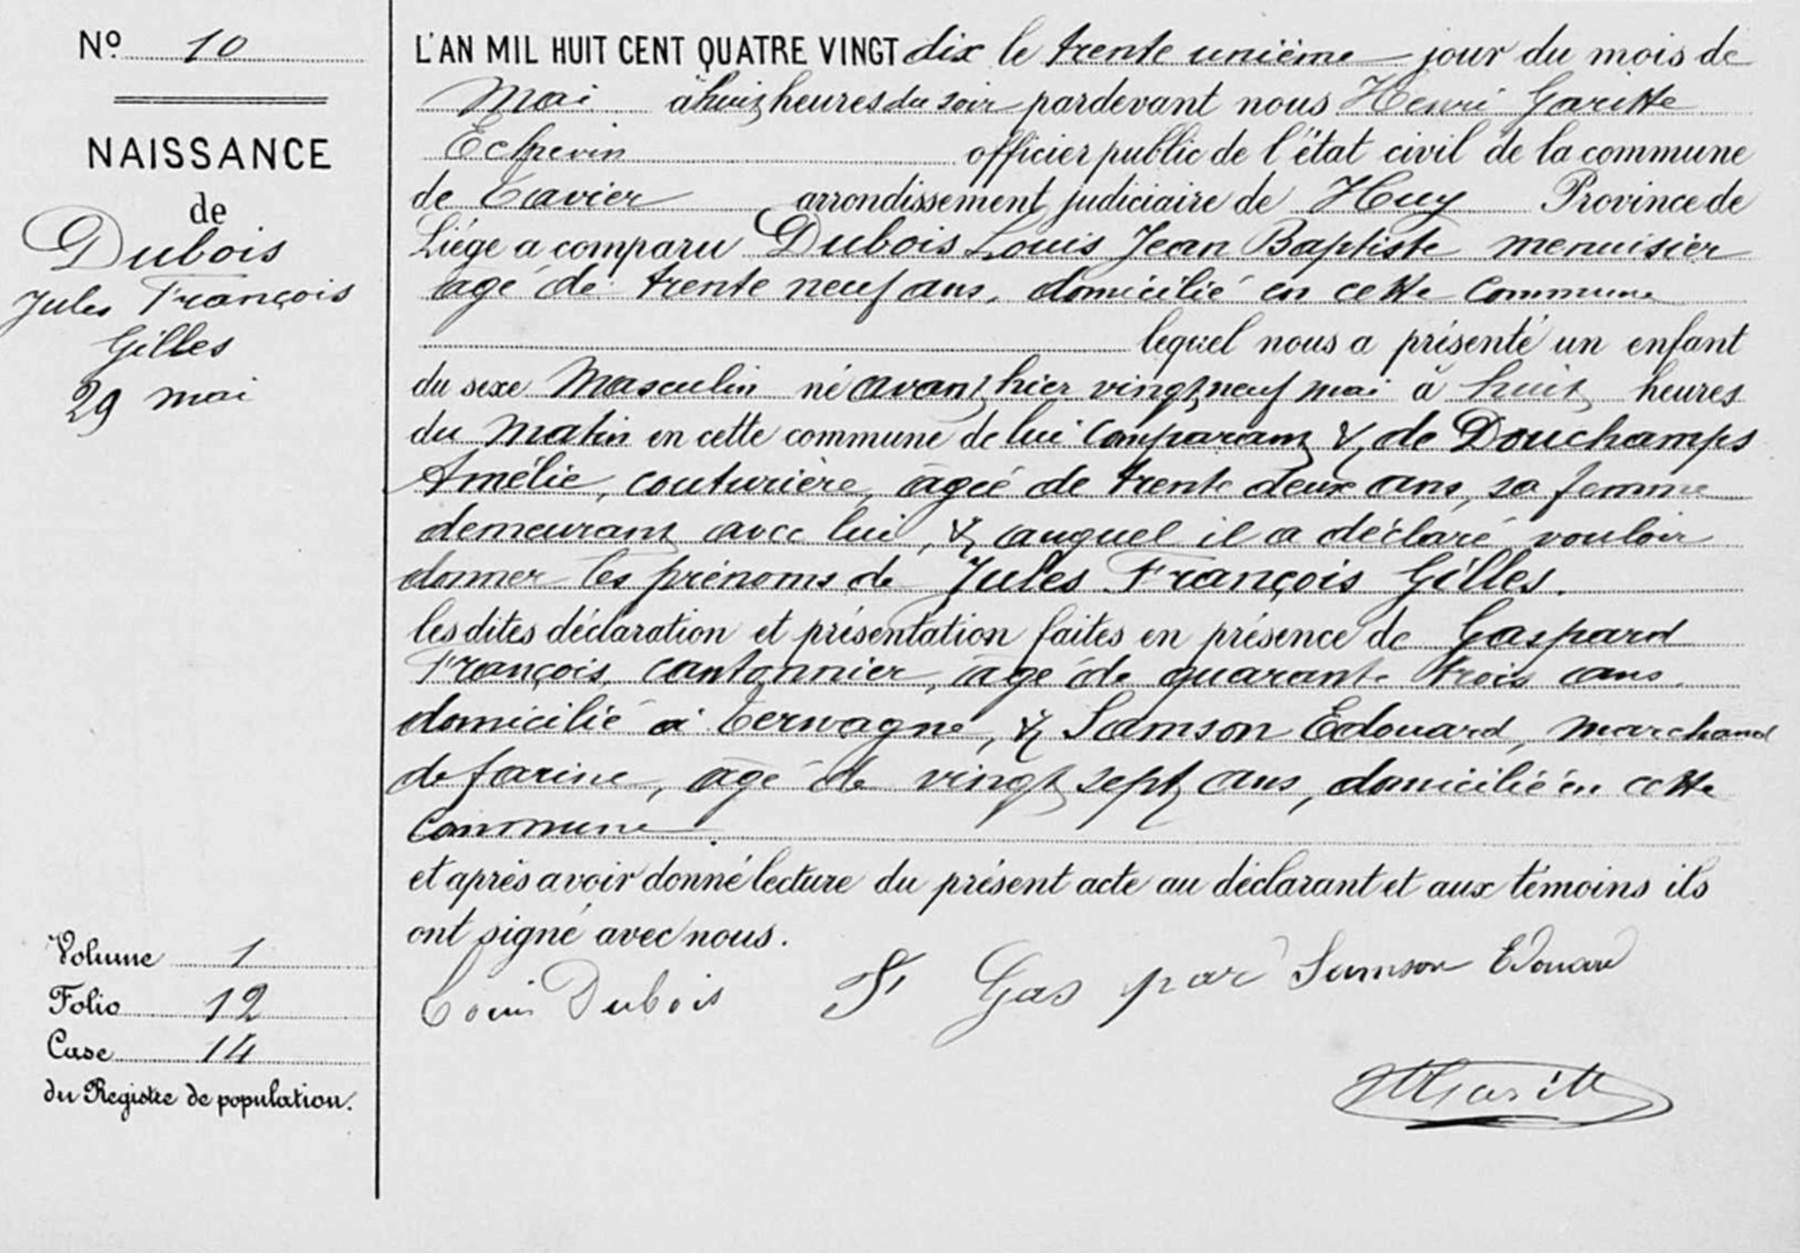 Nº 10
NAISSANCE
de
Dubois
Jules François
Gilles
29 mai
Volume 1
Folio 12
Case 14
du Registre de population.
L'AN MIL HUIT CENT QUATRE VINGT dix le trente unième jour du mois de
Mai à huit heures du soir pardevant nous Henri Garitte
Echevin officier public de l'état civil de la commune
de Tavier arrondissement judiciaire de Huy Province de
Liége a comparu Dubois Louis Jean Baptiste menuisier
âgé de trente neuf ans, domicilié en cette Commune
lequel nous a présenté un enfant
du sexe Masculin né avant hier vingt neuf mai à huit heures
du Matin en cette commune de lui Comparant & de Douchamps
Amélie, couturière, âgée de trente deux ans, sa femme
demeurant avec lui, & auquel il a déclaré vouloir
donner les prénoms de Jules François Gilles.
les dites déclaration et présentation faites en présence de Gaspard
François, cantonnier, âgé de quarante trois ans,
domicilié à Terwagne, & Samson Edouard, marchand
de farine, âgé de vingt sept ans, domicilié en cette
Commune.
et après avoir donné lecture du présent acte au déclarant et aux témoins ils
ont signé avec nous.
Louis Dubois F Gas par Samson Edouard
HGaritte